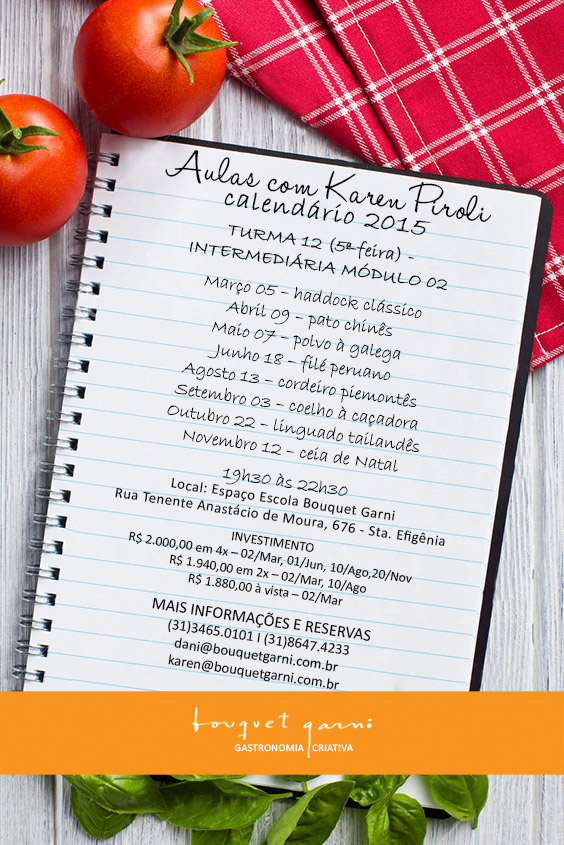 Aulas com Karen Piroli
calendário 2015
TURMA 12 (5ª feira) -
INTERMEDIÁRIA MÓDULO 02
Março 05 - haddock clássico
Abril 09 - pato chinês
Maio 07 - polvo à galega
Junho 18 - filé peruano
Agosto 13 - cordeiro piemontês
Setembro 03 - coelho à caçadora
Outubro 22 - linguado tailandês
Novembro 12 - ceia de Natal
19h30 às 22h30
Local: Espaço Escola Bouquet Garni
Rua Tenente Anastácio de Moura, 676 - Sta. Efigênia
INVESTIMENTO
R$ 2.000,00 em 4x – 02/Mar, 01/Jun, 10/Ago,20/Nov
R$ 1.940,00 em 2x – 02/Mar, 10/Ago
R$ 1.880,00 à vista – 02/Mar
MAIS INFORMAÇÕES E RESERVAS
(31)3465.0101 I (31)8647.4233
dani@bouquetgarni.com.br
karen@bouquetgarni.com.br
bouquet garni
GASTRONOMIA CRIATIVA